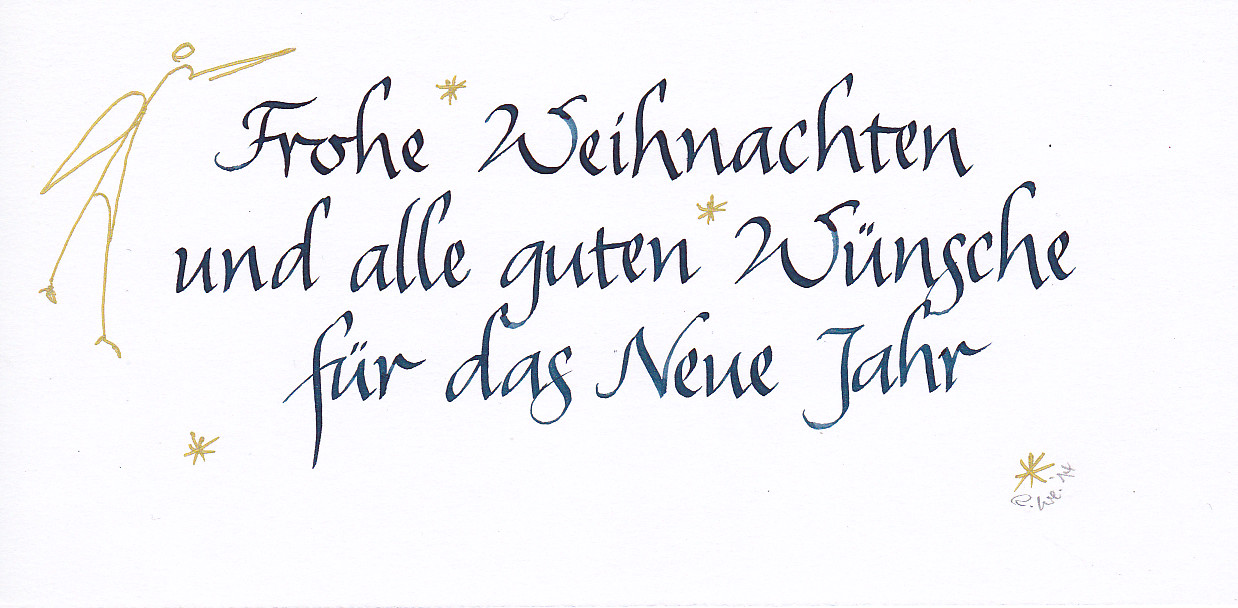 Frohe Weihnachten
und alle guten Wünsche
für das Neue Jahr